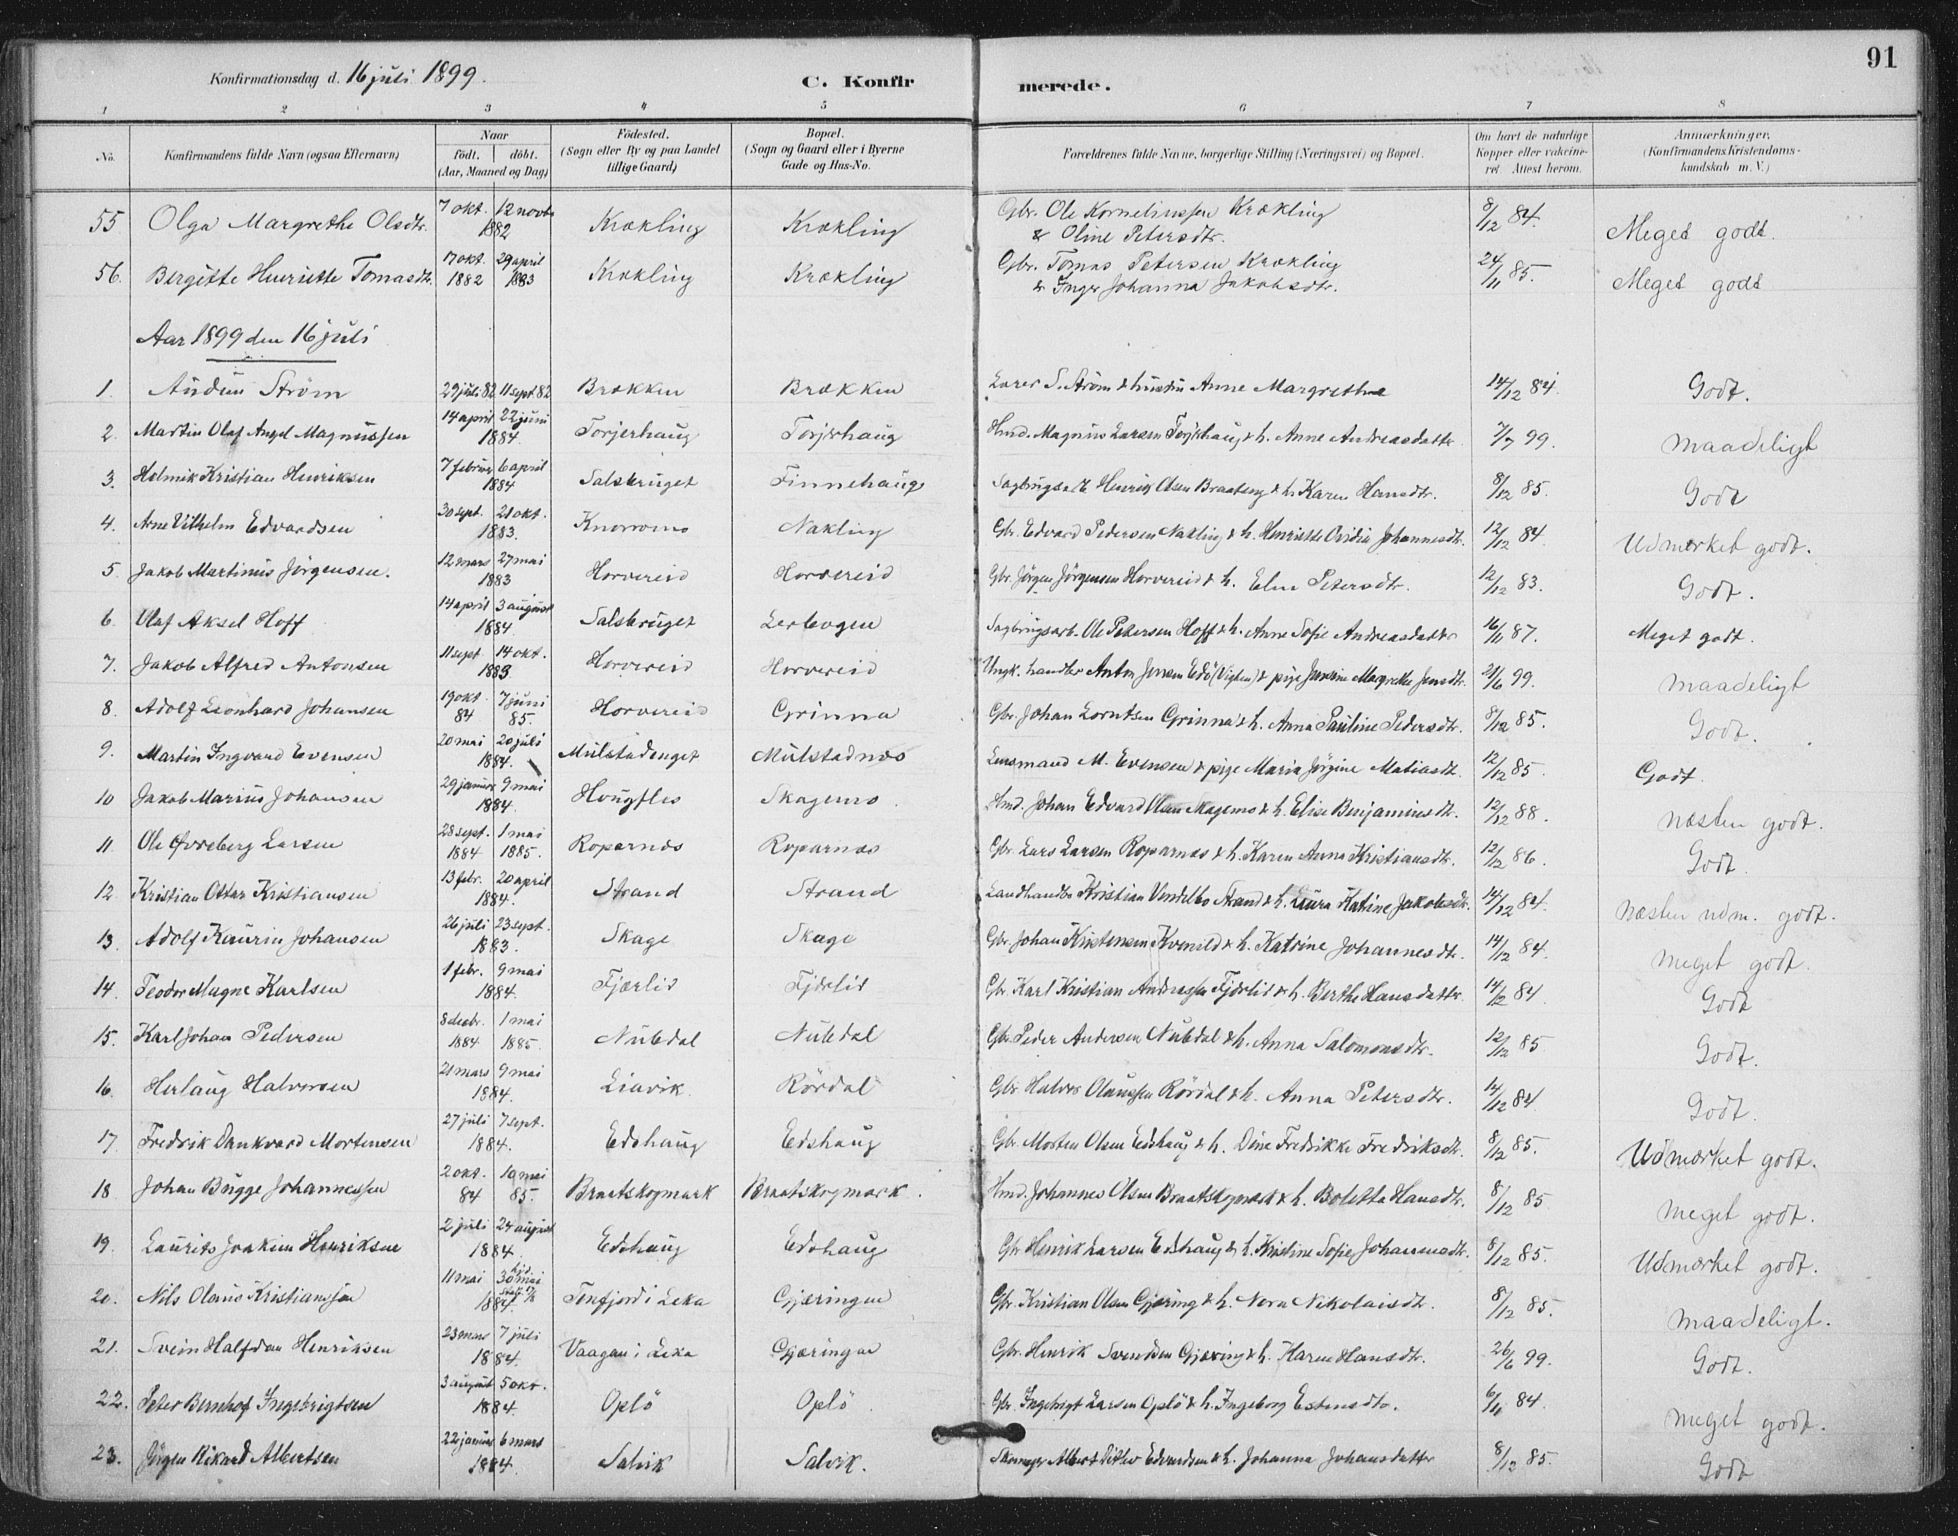 91
Konfirmationsdag d. 16 juli 1899. C. Konfirmerede.
1 2 3 4 5 6 7 8
No. Konfirmandens fulde Navn (ogsaa Efternavn) Naar født. døbt. (Aar, Maaned og Dag) Fødested. (Sogn eller By og paa Landet tillige Gaard) Bopæl. (Sogn og Gaard eller i Byerne Gade og Hus-No. Forældrenes fulde Navne, borgerlige Stilling (Næringsvei) og Bopæl. Om havt de naturlige Kopper eller vakcineret Attest herom. Anmærkninger. (Konfirmandens Kristendomskundskab m. V.)
55 Olga Margrethe Olsdtr. 7 okt. 12 novbr 1882 Krækling Krækling Gbr. Ole Korneliussen Krækling & Oline Petersdtr. 8/12 84. Meget godt.
56. Bergitte Henriette Tomasdtr. 17 okt. 1882 29 april 1883 Krækling Krækling Gbr. Tomas Petersen Krækling & Inger Johanna Jakobsdtr. 24/11 85. Meget godt
Aar 1899 den 16 juli
1. Audun Strøm 29 juli 82 11 sept 82 Brækken Brækken Lærer S. Strøm & hustru Anne Margrethe 14/12 84. Godt.
2. Martin Olaf Angel Magnussen 14 april 22 juni 1884. Torjerhaug Torjerhaug Hmd. Magnus Larsen Torjerhaug & h. Anne Andreasdattr 7/7 99. maadeligt
3. Holmik Kristian Henriksen 7 februar 6 april 1884 Salsbruget Finnehaug Sagbrugsarb. Henrik Olsen Braaberg & h. Karen Hansdtr. 8/12 85. Godt
4. Arne Vilhelm Edvardsen 30 sept. 21 okt. 1883. Knorromo Nakling Gbr. Edvard Pedersen Nakling & h. Henriette Ovidia Johannesdtr. 12/12 84. Udmærket godt.
5. Jakob Martinus Jørgensen. 12 mars 27 mai 1883 Horvereid Horvereid Gbr. Jørgen Jørgensen Horvereid & h. Elen Petersdtr. 12/12 83. Godt.
6. Olaf Aksel Hoff 14 april 3 august 1884. Salsbruget Lerbogen Sagbrugsarb. Ole Petersen Hoff & h. Anne Sofie Andreasdattr 16/11 87. Meget godt.
7. Jakob Alfred Antonsen 11 sept 14 okt. 1883 Horvereid Horvereid Ungk. handler Anton Jensen Edø (Vigten) & pige Jensine Margrethe Jensdtr. 21/6 99. maadeligt
8. Adolf Leonhard Johansen 19 okt. 84 7 juni 85. Horvereid Grinna Gbr. Johan Lorntsen Grinna & h. Anna Pauline Pedersdtr. 8/12 85. Godt.
9. Martin Ingvard Evensen 20 mai 20 juli 1884. Mulstadenget Mulstadnæs Lensmand M. Evensen & pige Maria Jørgine Matiasdt. 12/12 85. Godt.
10 Jakob Marius Johansen 29 januar 9 mai 1884. Hougfles Skagemo. Hmd. Johan Edvard Olsen Skagemo & h. Elise Benjaminsdtr. 12/12 88. næsten godt.
11. Ole Owreberg Larsen 28 sept. 1884 1 mai 1885. Roparnæs Roparnæs Gbr. Lars Larsen Roparnæs & h. Karen Anna Kristiansdtr. 12/12 86. Godt.
12. Kristian Ottar Kristiansen 13 febr. 20 april 1884. Strand Strand Landhandler Kristian Vendelbo Strand & h. Laura Katine Jakobsdtr. 14/12 84. Næsten udm. godt.
13. Adolf Kaurin Johansen 26 juli 23 sept. 1883. Skage Skage Gbr. Johan Kristensen Kvemild & h. Katrine Johannesdtr. 14/12 84. meget godt.
14. Teodor Magne Karlsen 1 febr. 9 mai 1884. Fjærlid Fjærlid Gbr. Karl Kristian Andreassen Fjærlid & h. Berthe Hansdattr. 14/12 84. Godt
15. Karl Johan Pedersen 8 decbr. 1884 1 mai 1885. Nubdal Nubdal Gbr. Peder Andersen Nubdal & h. Anna Salomonsdtr. 12/12 85 Godt.
16. Herlaug Halvorsen 21 mars 9 mai 1884. Liavik Rørdal Gbr. Halvor Olaussen Rørdal & h. Anna Petersdtr. 14/12 84 Godt.
17. Fredrik Dankvard Mortensen 27 juli 7 sept. 1884. Edshaug Edshaug Gbr. Morten Olsen Edshaug & h. Dine Fredrikke Fredriksdtr. 8/12 85. Udmærket godt.
18 Johan Brigge Johannessen 2 okt. 84 10 mai 85. Braatskogmark Braatskogmark. Hmd. Johannes Olsen Braatskogmark & h. Boletta Hansdtr. 8/12 85 meget godt.
19. Laurits Joakim Henriksen 2 juli 24 august 1884. Edshaug Edshaug Gbr. Henrik Larsen Edshaug & h. Kristine Sofie Johannesdtr. 8/12 85. Udmærket godt.
20. Nils Olaus Kristiansen 11 mai 30 mai 1884. Tenfjord i Leka Gjæringen Gbr. Kristian Olsen Gjæring & h. Nora Nikolaisdtr. 8/12 85. maadeligt.
21. Svein Halfdan Henriksen 23 mars 7 juli 1884. Vaagan i Leka Gjæringen Gbr. Henrik Svendsen Gjæring & h. Karen Hansdtr. 26/6 99. Godt.
22. Peter Bernhof Ingebrigtsen 3 august 5 okt. 1884. Oplø Oplø. Gbr. Ingebrigt Larsen Oplø & h. Ingeborg Estensdtr. 6/11 84. meget godt.
23. Jørgen Rikard Albertsen 22 januar 6 mars 1884. Salvik Salvik. Skomager Albert Ditlev Edvardsen & h. Johanna Johansdattr 8/12 85. Godt